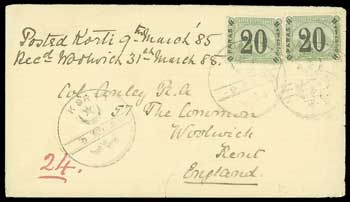 Posted Korti 9th March '85
Recd Woolwich 31st March 85.
PARAS 20
PARAS 20
Col. Conley R.A
57 The Common
Woolwich
Kent
England
KOR
24.